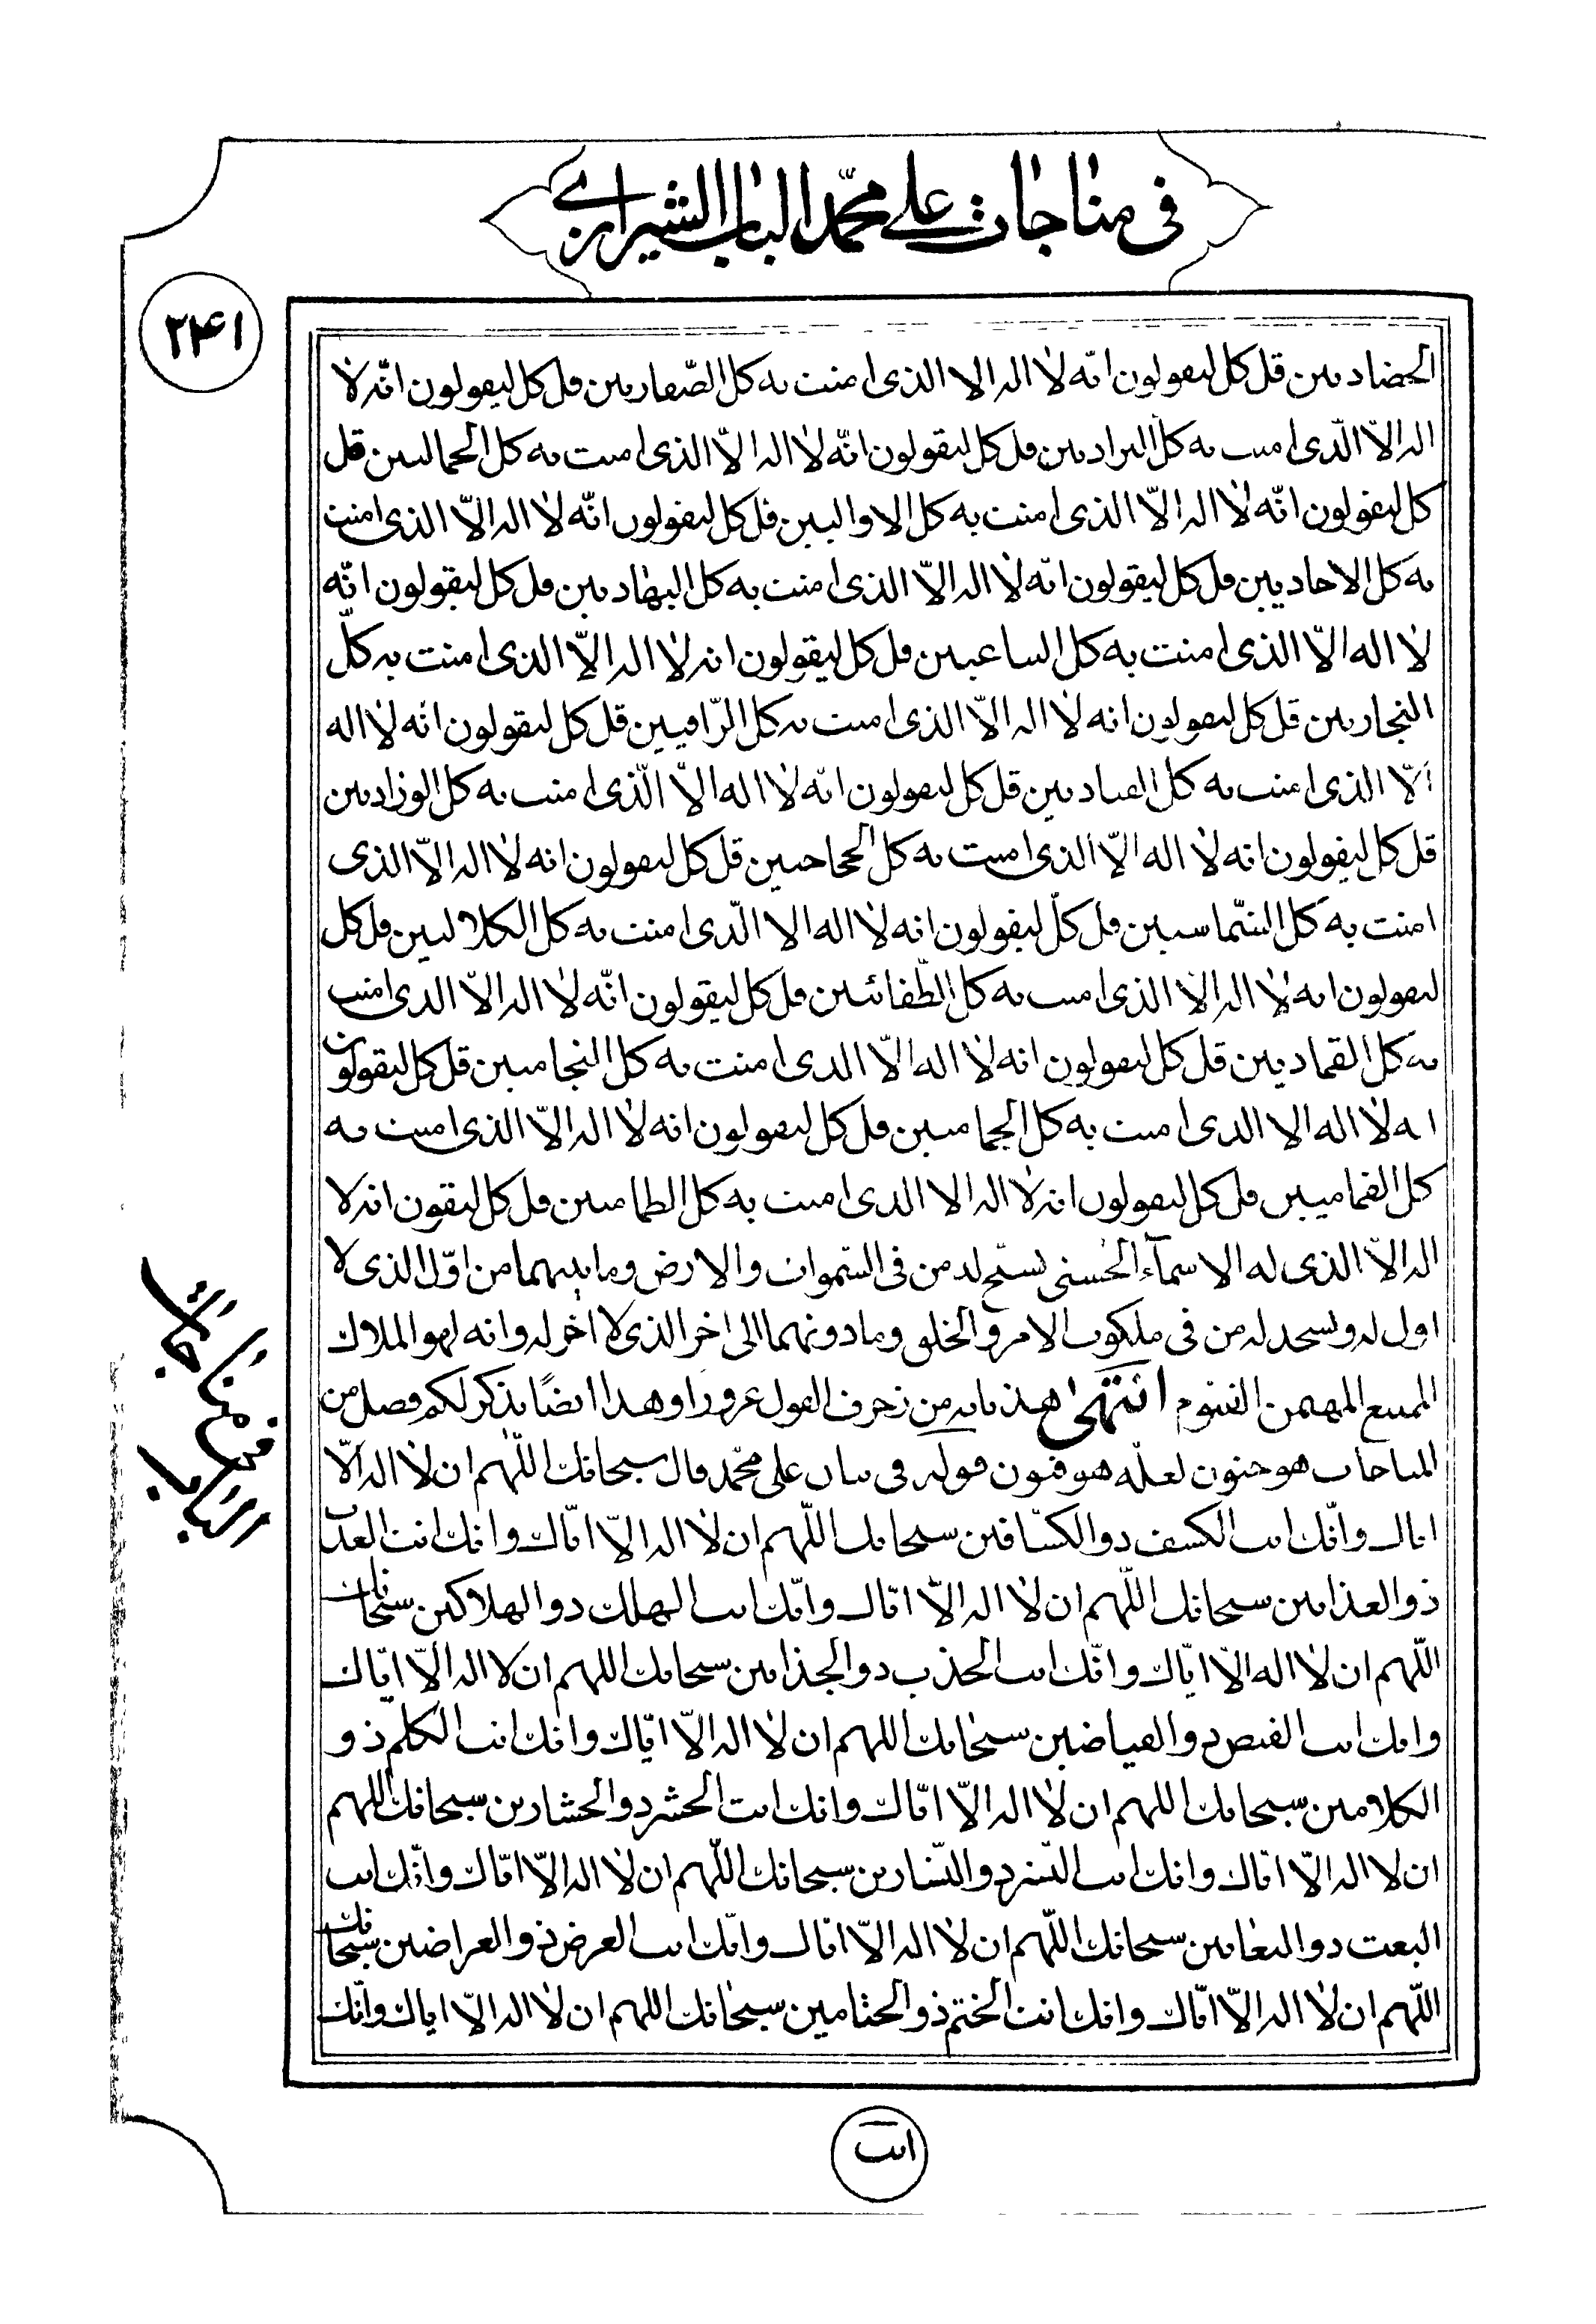 فی مناجات علی محمد الباب الشیرازی
۲۴۱
الحضادیین قل کل لیقولون انّه لا اله الا الذی امنت به کل الصّفاریین قل کل لیقولون انّه لا
اله الّا الّذی امنت به کل البرادیین قل کل لیقولون انّه لا اله الّا الذی امنت به کل الحمالیین قل
کل لیقولون انّه لا اله الّا الذی امنت به کل الاوالیین قل کل لیقولون انّه لا اله الّا الذی امنت
به کل الاحادیین قل کل لیقولون انّه لا اله الّا الذی امنت به کل البهادیین قل کل لیقولون انّه
لا اله الّا الذی امنت به کل الساعیین قل کل لیقولون انه لا اله الّا الذی امنت به کلّ
النجاریین قل کل لیقولون انه لا اله الّا الذی امنت به کل الرّاقیین قل کل لیقولون انّه لا اله
الّا الذی امنت به کل العبادیین قل کل لیقولون انّه لا اله الّا الّذی امنت به کل الوزادیین
قل کل لیقولون انه لا اله الّا الذی امنت به کل الحجاجیین قل کل لیقولون انه لا اله الّا الذی
امنت به کل الشّماسیین قل کلّ لیقولون انه لا اله الا الّذی امنت به کل الکلالیین قل کل
لیقولون انه لا اله الّا الذی امنت به کل الطّفائیین قل کل لیقولون انّه لا اله الّا الذی امنت
به کل القمادیین قل کل لیقولون انه لا اله الّا الذی امنت به کل النجامیین قل کل لیقولون
انه لا اله الا الذی امنت به کل الجمامیین قل کل لیقولون انه لا اله الّا الذی امنت به
کل القمامیین قل کل لیقولون انه لا اله الا الذی امنت به کل الطمامیین قل کل لیقون انه لا
اله الّا الذی له الاسمآء الحُسنی یسبّح له من فی السّموات والارض وما بینهما من اوّل الذی لا
اول له ویسجد له من فی ملکوت الامر والخلق وما دونهما الی اخر الذی لا اخر له وانه لهو الملاک
الممیع المهیمن القیّوم انتهی هذیانه من زخرف القول غرورا وهذا ایضًا یذکر لکم فصل من
المناجات هو جنون لعلّه هو فنون قوله فی بیان علی محمّد قال سبحانک اللّهم ان لا اله الّا
ایاک وانّک انت الکسف ذو الکسّافین سبحانک اللّهم ان لا اله الّا ایّاک وانک انت العذب
ذو العذابین سبحانک اللّهم ان لا اله الّا ایّاک وانّک انت الهلک ذو الهلاکین سبحانک
اللّهم ان لا اله الّا ایّاک وانّک انت الجذب ذو الجذابین سبحانک اللهم ان لا اله الّا ایّاک
وانک انت القبض ذو القباضین سبحانک اللهم ان لا اله الّا ایّاک وانک انت الکلم ذو
الکلامین سبحانک اللهم ان لا اله الّا ایّاک وانک انت الحشر ذو الحشارین سبحانک اللهم
ان لا اله الّا ایّاک وانک انت النّشر ذو النّشارین سبحانک اللّهم ان لا اله الّا ایّاک وانّک انت
البعث ذو البعاثین سبحانک اللّهم ان لا اله الّا ایّاک وانّک انت العرض ذو العراضین سبحانک
اللّهم ان لا اله الّا ایّاک وانک انت الختم ذو الختامین سبحانک اللهم ان لا اله الّا ایاک وانّک
فی مناجات
الباب
انت